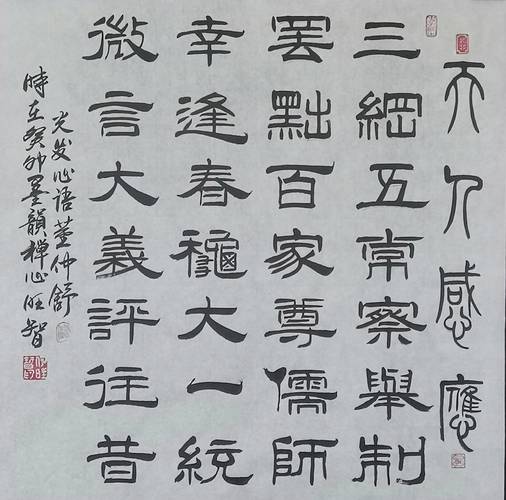 天人感應
三綱五常察舉制
罢黜百家尊儒師
幸逢春龝大一統
微言大義評往昔
光发心语董仲舒
時在癸卯墨韻禅心旺智